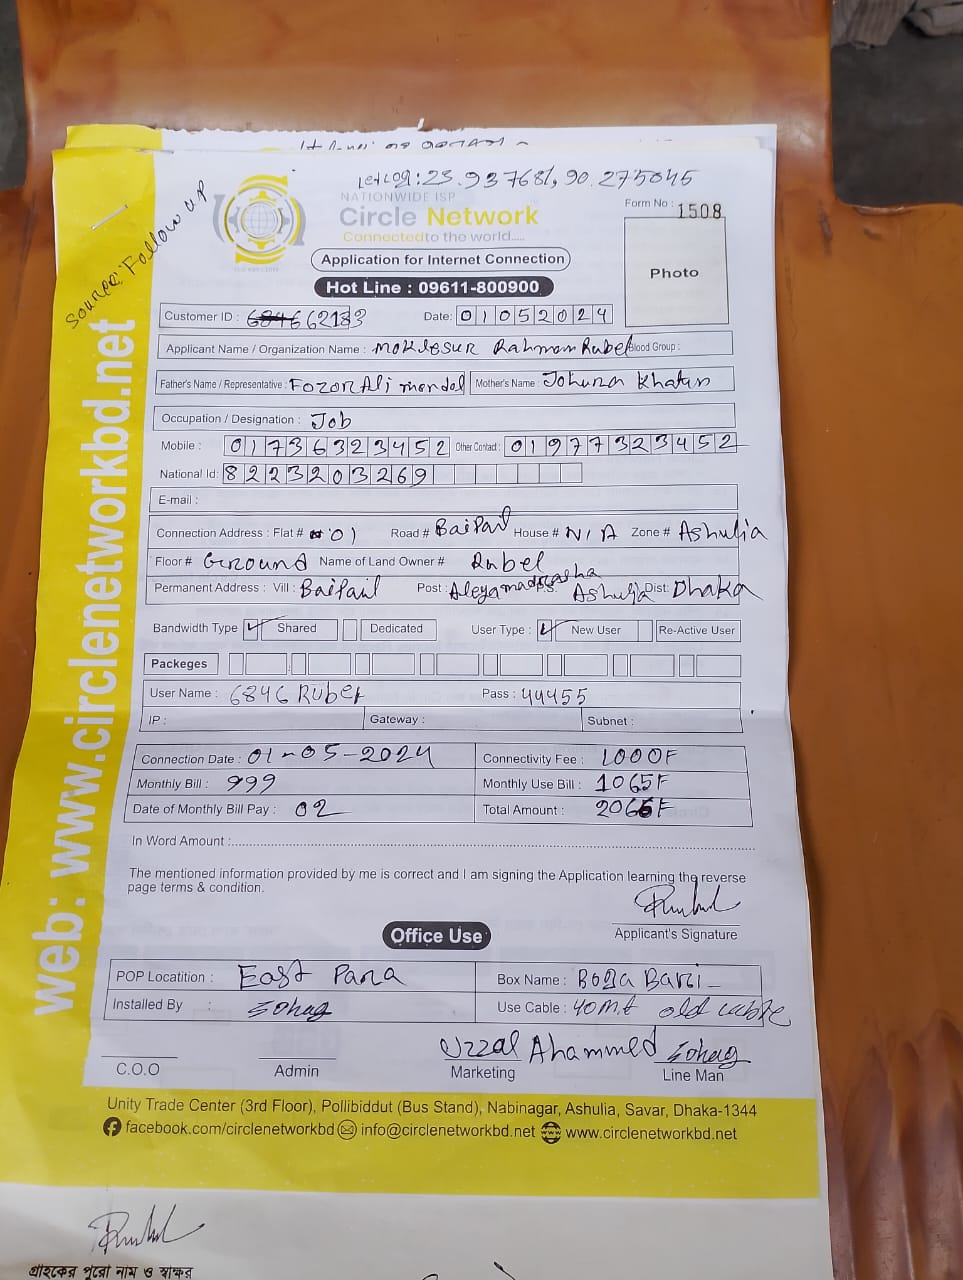 Let Log: 23.937681, 90.275045
NATIONWIDE ISP
Circle Network
Connected to the world.....
Form No : 1508
Photo
Source: Follow UP
Application for Internet Connection
Hot Line : 09611-800900
Customer ID : 662133 Date: 01052024
Applicant Name / Organization Name : Moklesur Rahman Rubel Blood Group :
Father's Name / Representative : Fozor Ali mondol Mother's Name : Johura Khatun
Occupation / Designation : Job
Mobile : 01736323452 Other Contact : 01977323452
National Id: 8223203269
E-mail :
Connection Address : Flat # 01 Road # Baipail House # N/A Zone # Ashulia
Floor# Ground Name of Land Owner # Rubel
Permanent Address : Vill : Baipail Post : Aleyamadrasha P.S: Ashulia Dist: Dhaka
Bandwidth Type ✓ Shared Dedicated User Type : ✓ New User Re-Active User
Packeges
User Name : 6846 Rubel Pass : 44455
IP : Gateway : Subnet :
Connection Date : 01-05-2024 Connectivity Fee : 1000F
Monthly Bill : 999 Monthly Use Bill : 1065F
Date of Monthly Bill Pay : 02 Total Amount : 2065F
In Word Amount :
The mentioned information provided by me is correct and I am signing the Application learning the reverse
page terms & condition.
Applicant's Signature
Office Use
POP Locatition : East Para Box Name : Boga Bari
Installed By : Sohag Use Cable : 40mt old cable
Uzzal Ahammed Sohag
C.O.O Admin Marketing Line Man
Unity Trade Center (3rd Floor), Pollibiddut (Bus Stand), Nabinagar, Ashulia, Savar, Dhaka-1344
facebook.com/circlenetworkbd info@circlenetworkbd.net www.circlenetworkbd.net
web: www.circlenetworkbd.net
গ্রাহকের পুরো নাম ও স্বাক্ষর